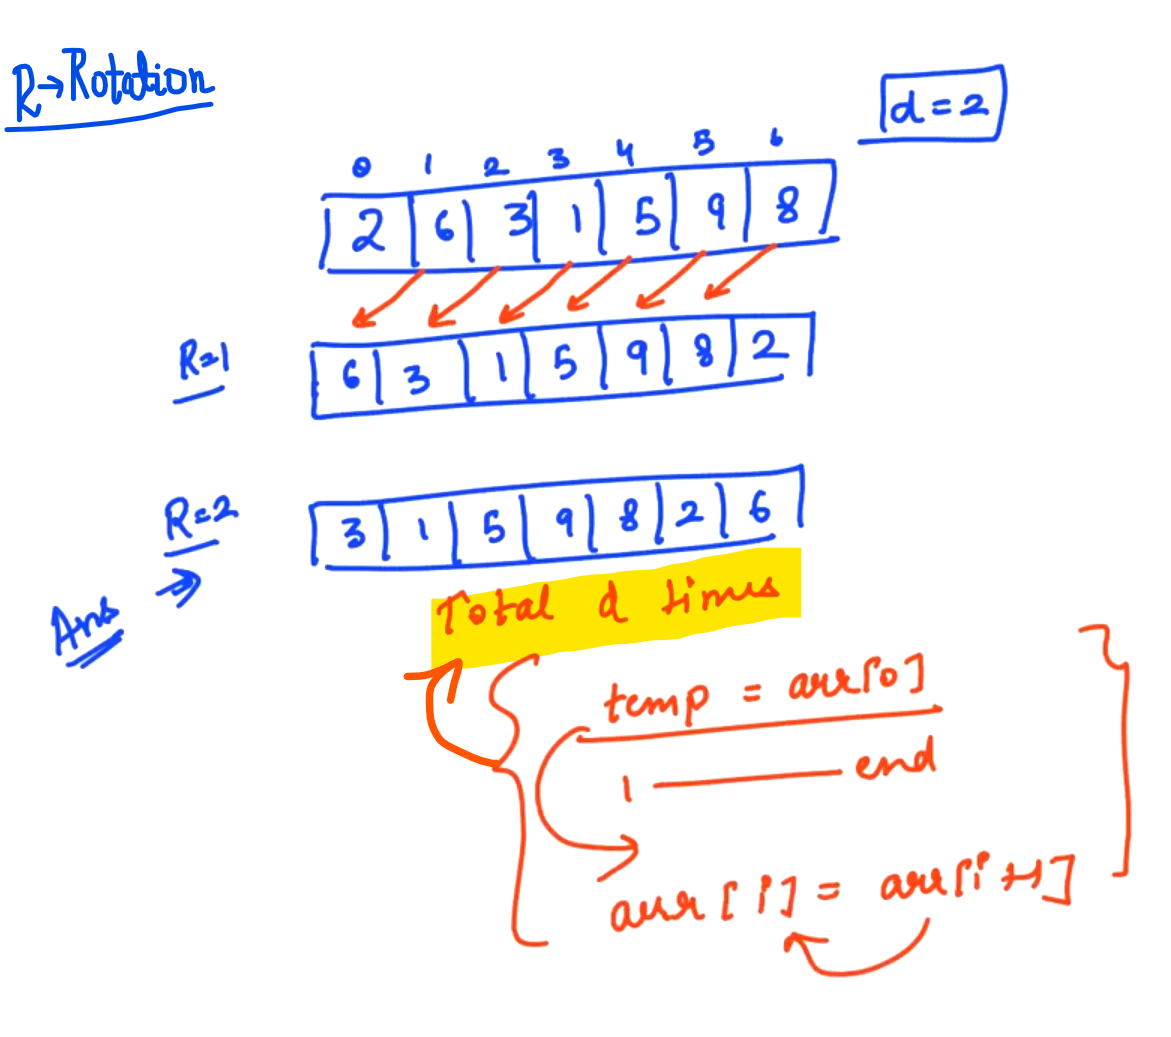 R→Rotation
d=2
0 1 2 3 4 5 6
2 6 3 1 5 9 8
R=1
6 3 1 5 9 8 2
R=2
3 1 5 9 8 2 6
Ans →
Total d times
temp = arr[0]
1 — end
arr[i] = arr[i+1]